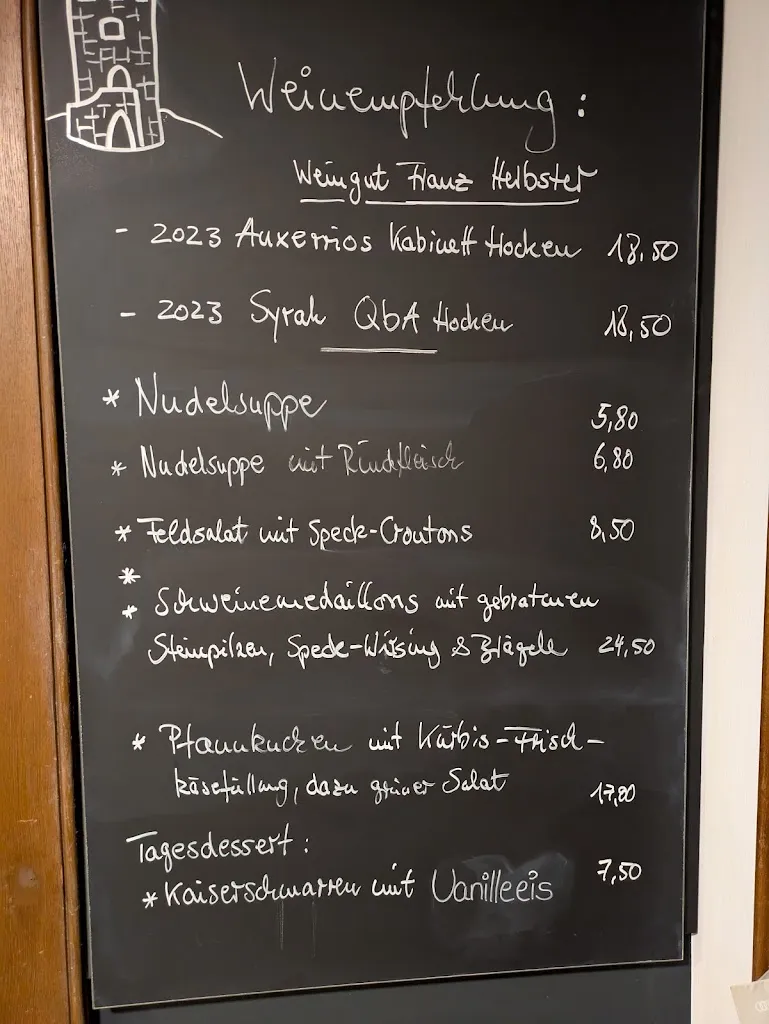 Weinempfehlung :
Weingut Franz Herbster
- 2023 Auxerrios Kabinett trocken 18,50
- 2023 Syrah QbA trocken 18,50
* Nudelsuppe 5,80
* Nudelsuppe mit Rindfleisch 6,80
* Feldsalat mit Speck-Croutons 8,50
*
* Schweinemedaillons mit gebratenen
Steinpilzen, Speck-Wirsing & Brägele 24,50
* Pfannkuchen mit Kürbis-Frisch-
käsefüllung, dazu grüner Salat 17,80
Tagesdessert :
* Kaiserschmarren mit Vanilleeis 7,50